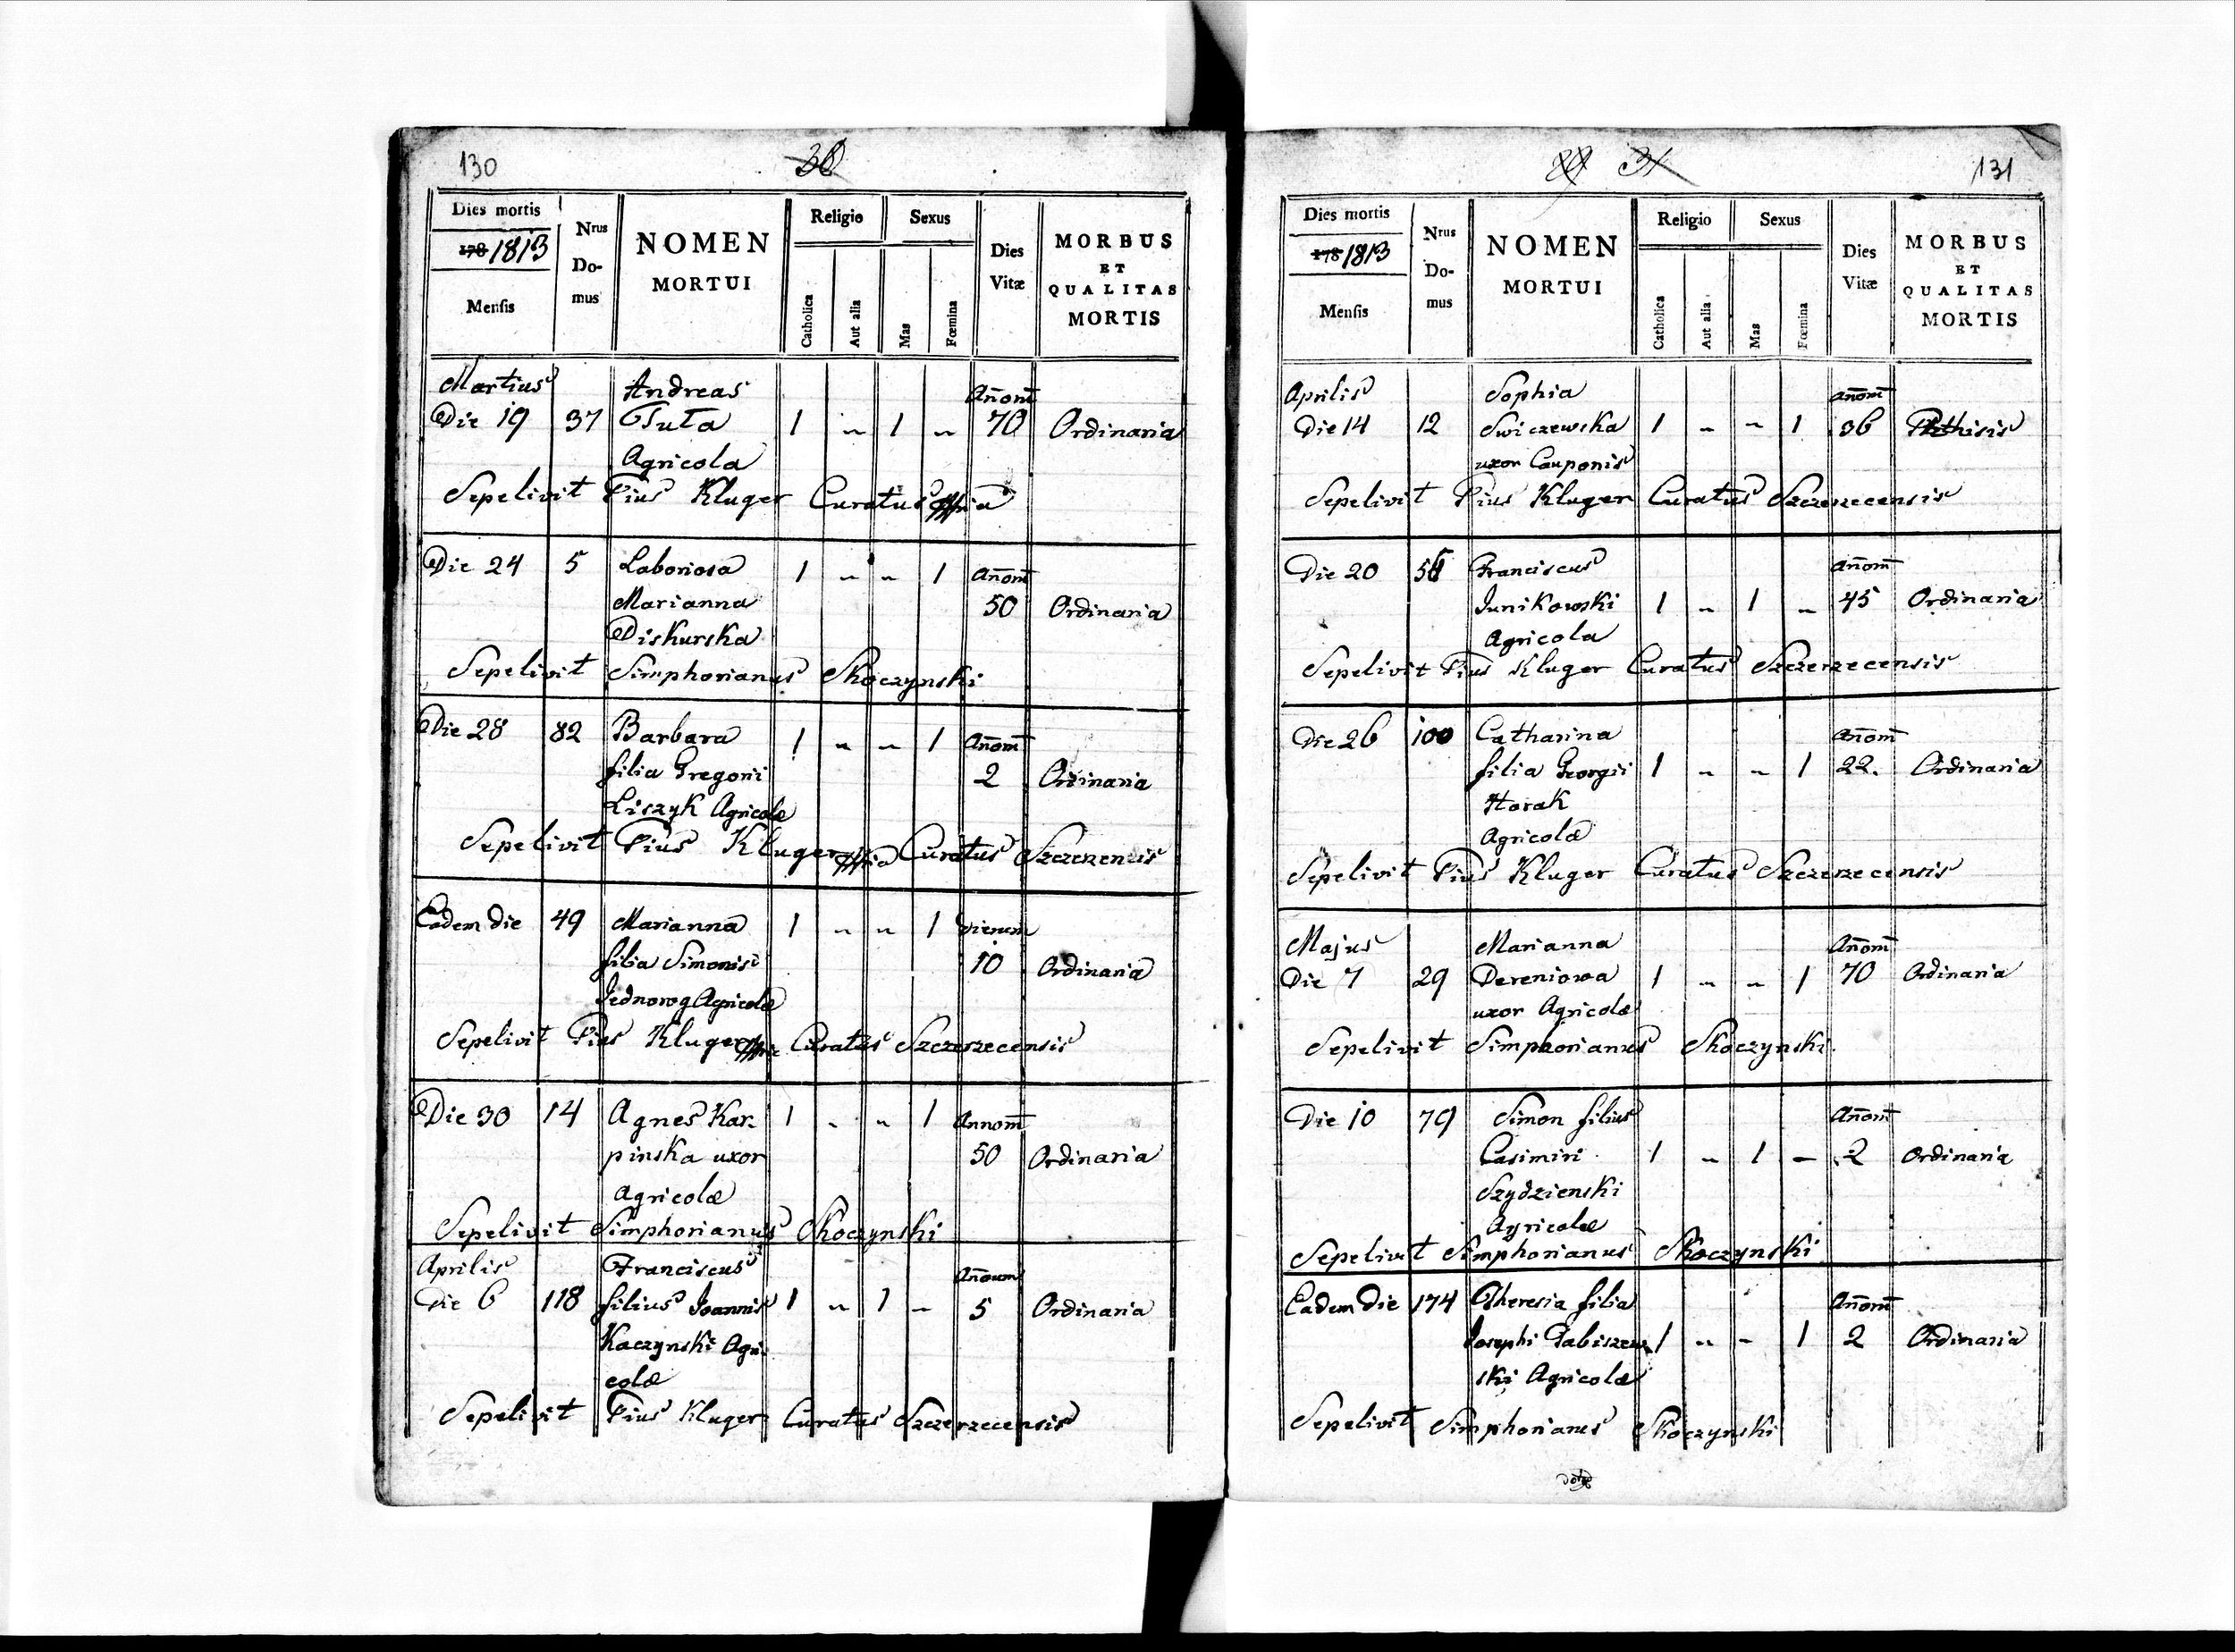 130
30
Dies mortis
178 1813
Mensis
Nrus
Do-
mus
NOMEN
MORTUI
Religio
Sexus
Catholica
Aut alia
Mas
Fœmina
Dies
Vitæ
MORBUS
ET
QUALITAS
MORTIS
Martius
Andreas
Añom̃
Die 19 37 Tuta 1 " 1 " 70 Ordinaria
Agricola
Sepelivit Pius Kluger Curatus
Die 24 5 Laboriosa 1 " " 1 Añom̃
Marianna 50 Ordinaria
Diskurska
Sepelivit Simphorianus Skoczynski
Die 28 82 Barbara 1 " " 1 Añom̃
filia Gregorii 2 Ordinaria
Liszyk Agricolæ
Sepelivit Pius Kluger Curatus
Eadem die 49 Marianna 1 " " 1 Dierum
filia Simonis 10 Ordinaria
Jednorog Agricolæ
Sepelivit Pius Kluger Curatus Szczerzecensis
Die 30 14 Agnes Kar- 1 " " 1 Annom̃
pinska uxor 50 Ordinaria
Agricolæ
Sepelivit Simphorianus Skoczynski
Aprilis Franciscus Añorum
Die 6 118 filius Joannis 1 " 1 – 5 Ordinaria
Kaczynski Agri-
colæ
Sepelivit Pius Kluger Curatus Szczerzecensis
29 31
131
Dies mortis
178 1813
Mensis
Nrus
Do-
mus
NOMEN
MORTUI
Religio
Sexus
Catholica
Aut alia
Mas
Fœmina
Dies
Vitæ
MORBUS
ET
QUALITAS
MORTIS
Aprilis Sophia añom̃
Die 14 12 Swiczewska 1 " " 1 36 Phthisis
uxor Cauponis
Sepelivit Pius Kluger Curatus Szczerzecensis
Die 20 Franciscus añom̃
Junikowski 1 " 1 " 45 Ordinaria
Agricola
Sepelivit Pius Kluger Curatus Szczerzecensis
Die 26 100 Catharina añom̃
filia Georgii 1 " " 1 22. Ordinaria
Horak
Agricolæ
Sepelivit Pius Kluger Curatus Szczerzecensis
Majus Marianna Añom̃
Die 7 29 Dereniowa 1 " " 1 70 Ordinaria
uxor Agricolæ
Sepelivit Simphorianus Skoczynski.
Die 10 79 Simon filius Añom̃
Casimiri 1 " 1 – 2 Ordinaria
Szydzienski
Agricolæ
Sepelivit Simphorianus Skoczynski
Eadem Die 174 Theresia filia Añom̃
Josephi Pabiszew- 1 " " 1 2 Ordinaria
ski Agricolæ
Sepelivit Simphorianus Skoczynski